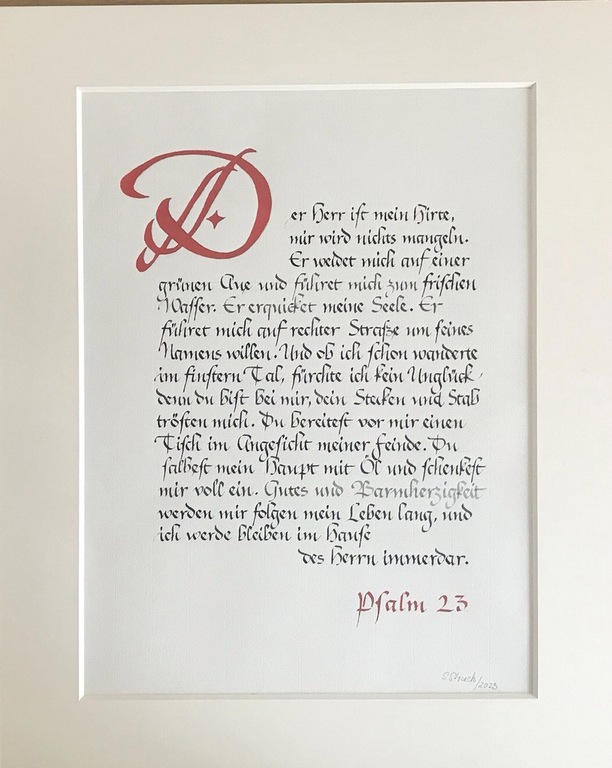 Der Herr ist mein Hirte,
mir wird nichts mangeln.
Er weidet mich auf einer
grünen Aue und führet mich zum frischen
Wasser. Er erquicket meine Seele. Er
führet mich auf rechter Straße um seines
Namens willen. Und ob ich schon wanderte
im finstern Tal, fürchte ich kein Unglück,
denn du bist bei mir, dein Stecken und Stab
trösten mich. Du bereitest vor mir einen
Tisch im Angesicht meiner Feinde. Du
salbest mein Haupt mit Öl und schenkest
mir voll ein. Gutes und Barmherzigkeit
werden mir folgen mein Leben lang, und
ich werde bleiben im Hause
des Herrn immerdar.
Psalm 23
/2023